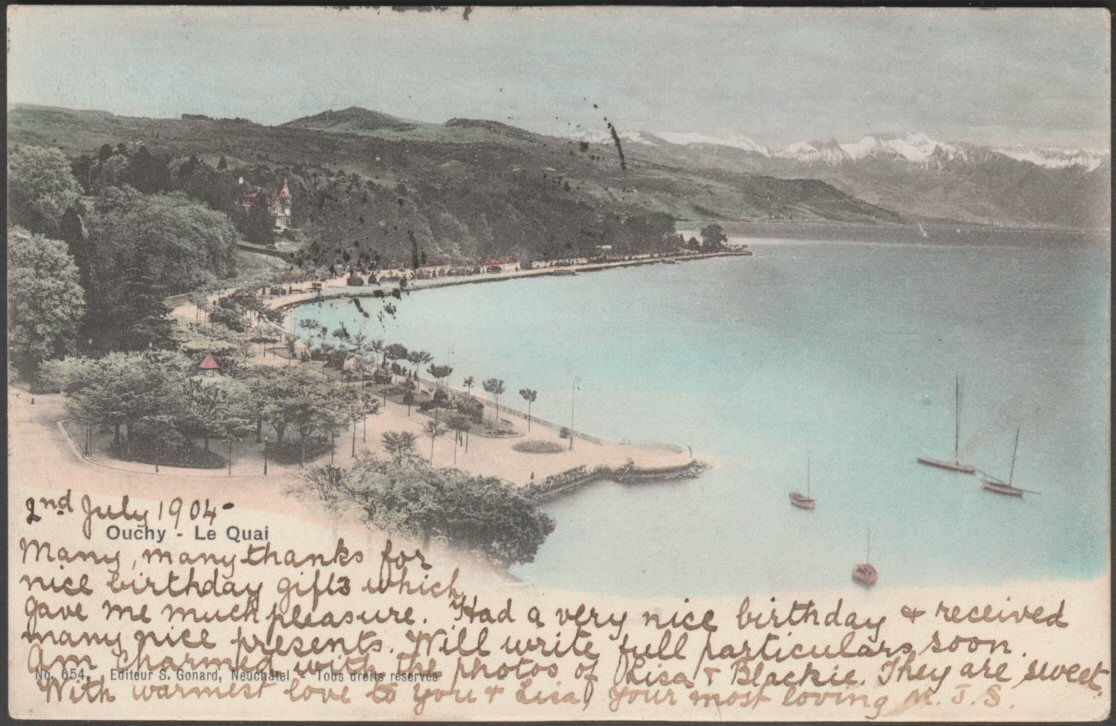 2nd July 1904-
Ouchy - Le Quai
Many, many thanks for
nice birthday gifts which
gave me much pleasure. Had a very nice birthday & received
many nice presents. Will write full particulars soon.
Am charmed with the photos of Lisa & Blackie. They are sweet.
No. 654. Editeur S. Gonard, Neuchâtel - Tous droits réservés
With warmest love to you & Lisa, Your most loving M.J.S.